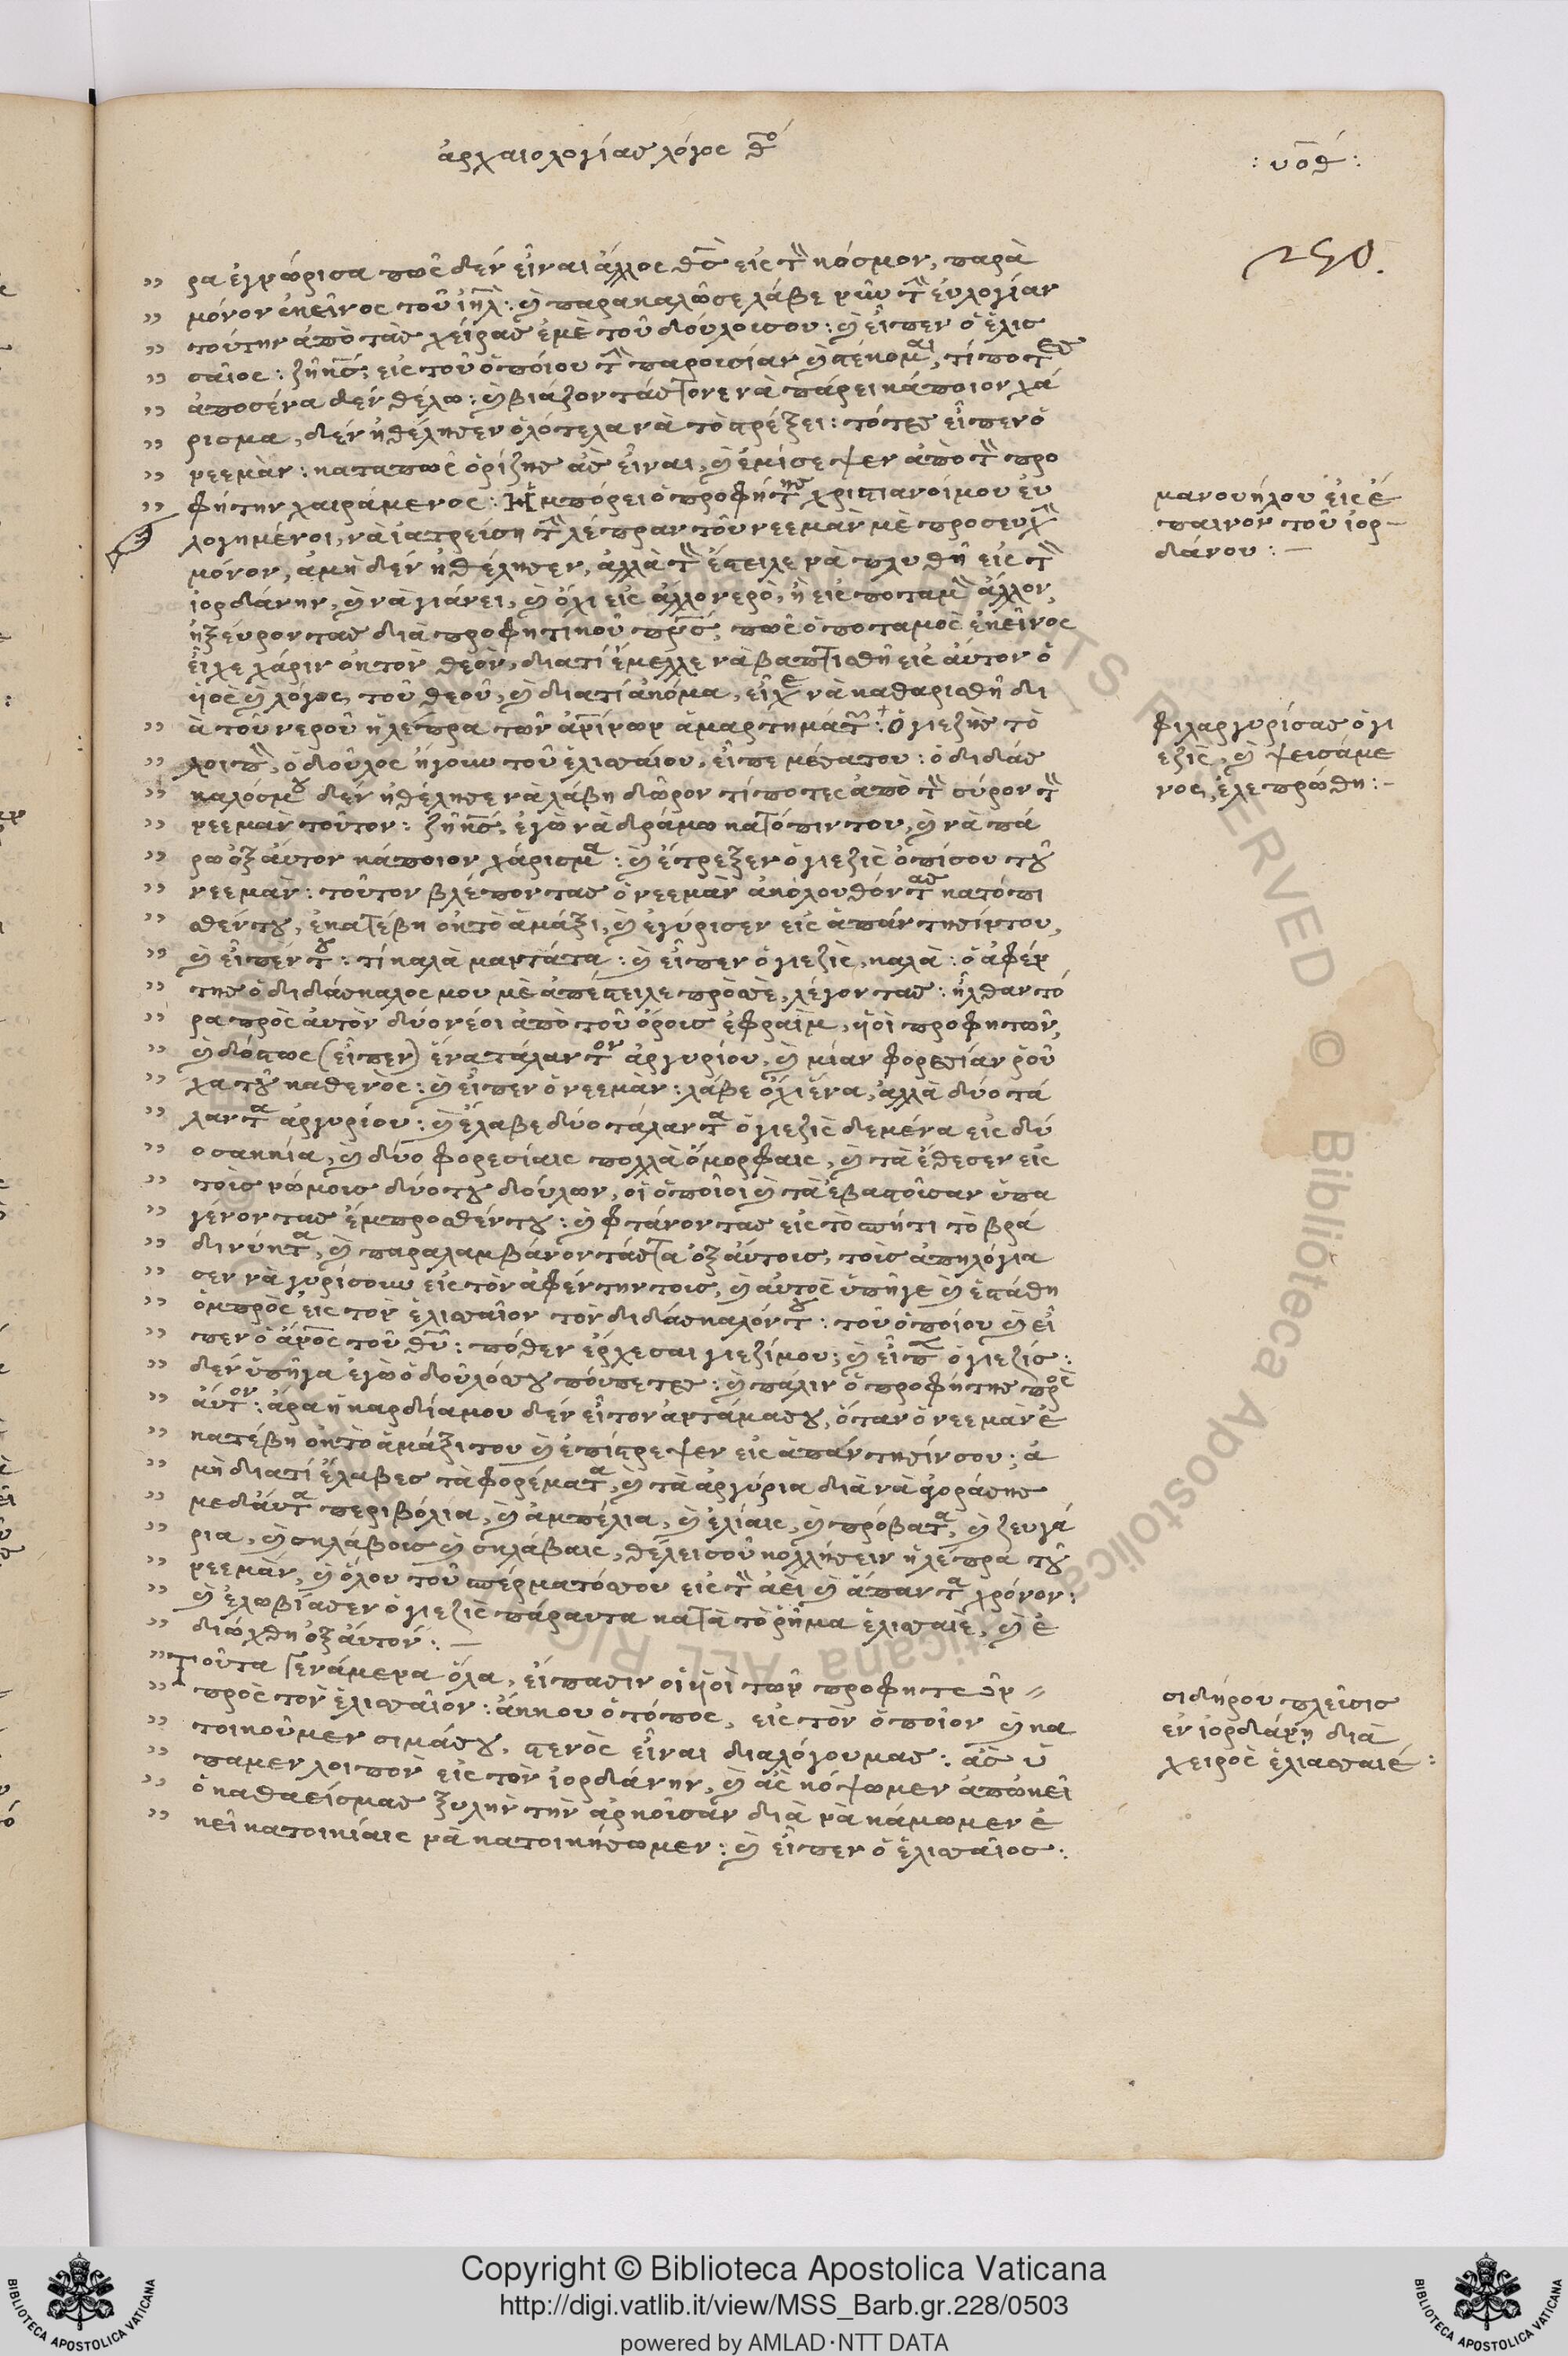 ἀρχαιολογίας λόγος θ̅ο
: υ̅ο̅θ :
250.
ρα ἐγνώρισα πῶς δὲν εἶναι ἄλλος θ̅ς εἰς τ̅ κόσμον, παρὰ
μόνον ἐκεῖνος τοῦ ἰη̅λ : ϗ παρακαλῶσε λάβε νῦν τ̅ εὐλογίαν
τούτην ἀπὸ τὰς χείρας ἐμὲ τοῦ δούλουσου : ϗ εἶπεν ὁ ἐλισ
σαῖος : ζῆ κ̅ς, εἰς τοῦ ὁποίου τ̅ παρουσίαν ϗ στέκομαι, τίποτες
ἀποσένα δὲν θέλω : ϗ βιάζοντάς τονε νὰ πάρει κάποιον χά
ρισμα, δὲν ἠθέλησεν ὁλότελα νὰ τὸ στρέξει : τότες εἶπεν ὁ
νεεμὰν : καταπῶς ὁρίζης ἂς εἶναι, ϗ ἐμίσεψεν ἀπὸ τ̅ προ
φήτην χαιράμενος : Ἠμπόρει ὁ προφήτης χριστιανοίμου εὐ
λογημένοι, νὰ ἰατρεύση τ̅ λέπραν τοῦ νεεμὰν μὲ προσευχ̅
μόνον, ἀμὴ δὲν ἠθέλησεν, ἀλλὰ τ̅ ἔστειλε νὰ πλυθῆ εἰς τ̅
ἰορδάνην, ϗ νὰ γιάνει, ϗ ὄχι εἰς ἄλλο νερὸ, ἢ εἰς ποταμ̅ ἄλλον,
ἠξεύροντας διὰ προφητικοῦ π̅ν̅ς, πῶς ὁ ποταμὸς ἐκεῖνος
εἶχε χάριν ἐκ τὸν θεὸν, διατί ἔμελλε νὰ βαπτισθῆ εἰς αὐτον ὁ
ὑιὸς ϗ λόγος τοῦ θεοῦ, ϗ διατί ἀκόμα, εἶχε νὰ καθαρισθῆ δι
ὰ τοῦ νεροῦ ἡ λέπρα τῶν ἀ̅ν̅ινων ἁμαρτημάτ̅ : Ὁ γιεζὴς τὸ
λοιπ̅, ὁ δοῦλος ἤγουν τοῦ ἐλισσαίου, εἶπε μέσατου : ὁ διδάς
καλόςμου δὲν ἠθέλησε νὰ λάβη δῶρον τίποτες ἀπὸ τ̅ σύρον τ̅
νεεμὰν τοῦτον : ζῆ κ̅ς, ἐγὼ νὰ δράμω κατόπιν του, ϗ νὰ πά
ρω ἐξ αὐτον κάποιον χάρισμα : ϗ ἔτρεξεν ὁ γιεζὶς ὀπίσου τοῦ
νεεμὰν : τοῦτον βλέποντας ὁ νεεμὰν ἀκολουθόντας κατόπι
σθέντου, ἐκατέβη ἐκ τὸ ἁμάξι, ϗ ἐγύρισεν εἰς ἀπάντησίντου,
ϗ εἶπέντου : τί καλὰ μαντάτα : ϗ εἶπεν ὁ γιεζὶς, καλὰ : ὁ ἀφέν
της ὁ διδάσκαλος μου μὲ ἀπέστειλε πρὸσὲ, λέγοντας : ἦλθαν τό
ρα πρὸς αὐτὸν δύο νέοι ἀπὸ τοῦ ὄρους ἐφραῒμ, ὑιοὶ προφητῶν,
ϗ δόςτως (εἶπεν) ἕνα τάλαντον ἀργυρίου, ϗ μίαν φορεσίαν ῥοῦ
χα τοῦ καθενὸς : ϗ εἶπεν ὁ νεεμὰν : λάβε ὄχι ἕνα, ἀλλὰ δύο τά
λαντα ἀργυρίου : ϗ ἔλαβε δύο τάλαντα ὁ γιεζὶς δεμένα εἰς δύ
ο σακκία, ϗ δύο φορεσίαις πολλὰ ὄμορφαις, ϗ τὰ ἔθεσεν εἰς
τοὺς νώμους δύο του δούλων, οἱ ὁποῖοι ϗ τὰ ἐβαστοῦσαν ὑπα
γένοντας ἔμπροσθέντου : ϗ φτάνοντας εἰς τὸ σπῆτι τὸ βρά
δι νύκτα, ϗ παραλαμβάνοντάς τα ἐξ αὐτους, τοὺς ἀπηλόγια
σεν νὰ γυρίσουν εἰς τὸν ἀφέντηντους, ϗ αὐτὸς ὑπῆγε ϗ ἐστάθη
ὀμπρὸς εἰς τὸν ἐλισσαῖον τὸν διδάσκαλόντου : τοῦ ὁποίου ϗ εἶ
πεν ὁ ἄν̅ος τοῦ θ̅υ : πόθεν ἔρχεσαι γιεζίμου; ϗ εἶπ̅ ὁ γιεζίς :
δὲν ὑπῆγα ἐγὼ ὁ δοῦλόςσου πούπετες : ϗ πάλιν ὁ προφήτης πρὸς
αὐτον : ἄρα ἡ καρδίαμου δὲν εἶτον ἀντάμασου, ὅταν ὁ νεεμὰν ἐ
κατέβη ἐκ τὸ ἁμάξι του ϗ ἐπίστρεψεν εἰς ἀπάντησίν σου; ἀ
μὴ διατί ἔλαβες τὰ φορέματα, ϗ τὰ ἀργύρια διὰ νὰ ἀγοράσης
μεδαύτα περιβόλια, ϗ ἀμπέλια, ϗ ἐλίαις, ϗ πρόβατα, ϗ ζευγά
ρια, ϗ σκλάβους ϗ σκλάβαις, θέλει σοῦ κολλήσειν ἡ λέπρα τοῦ
νεεμὰν, ϗ ὅλου τοῦ σπέρματόςσου εἰς τ̅ ἀεὶ ϗ ἅπαντα χρόνον :
ϗ ἐλωβίασεν ὁ γιεζὶς πάραυτα κατὰ τὸ ῥῆμα ἐλισσαιὲ, ϗ ἐ
διώχθη ἐξ αὐτον : —
Τοῦτα γενάμενα ὅλα, εἴπασιν οἱ ὑιοὶ τῶν προφητῶν
πρὸς τὸν ἐλισσαῖον : ἄκκου ὁ τόπος, εἰς τὸν ὁποῖον ϗ κα
τοικοῦμεν σιμάσου, στενὸς εἶναι διαλόγουμας : ἂς ὑ
παμεν λοιπὸν εἰς τὸν ἰορδάνην, ϗ ἂς κόψωμεν ἀπῶκεῖ
ὁ καθαείςμας ξυλὴν τὴν ἀρκοῦσαν διὰ νὰ κάμωμεν ἐ
κεῖ κατοικίαις νὰ κατοικήσωμεν : ϗ εἶπεν ὁ ἐλισσαῖος :
μανουήλου εἰς ἔ
παινον τοῦ ἰορ-
δάνου : —
φιλαργυρίσας ὁ γι
εζὶς, ϗ ψευσάμε
νος, ἐλεπρώθη : -
σιδήρου πλεῦσις
ἐν ἰορδάνῃ διὰ
χειρὸς ἐλισσαιέ :
Copyright © Biblioteca Apostolica Vaticana
http://digi.vatlib.it/view/MSS_Barb.gr.228/0503
powered by AMLAD·NTT DATA
BIBLIOTECA APOSTOLICA VATICANA
BIBLIOTECA APOSTOLICA VATICANA